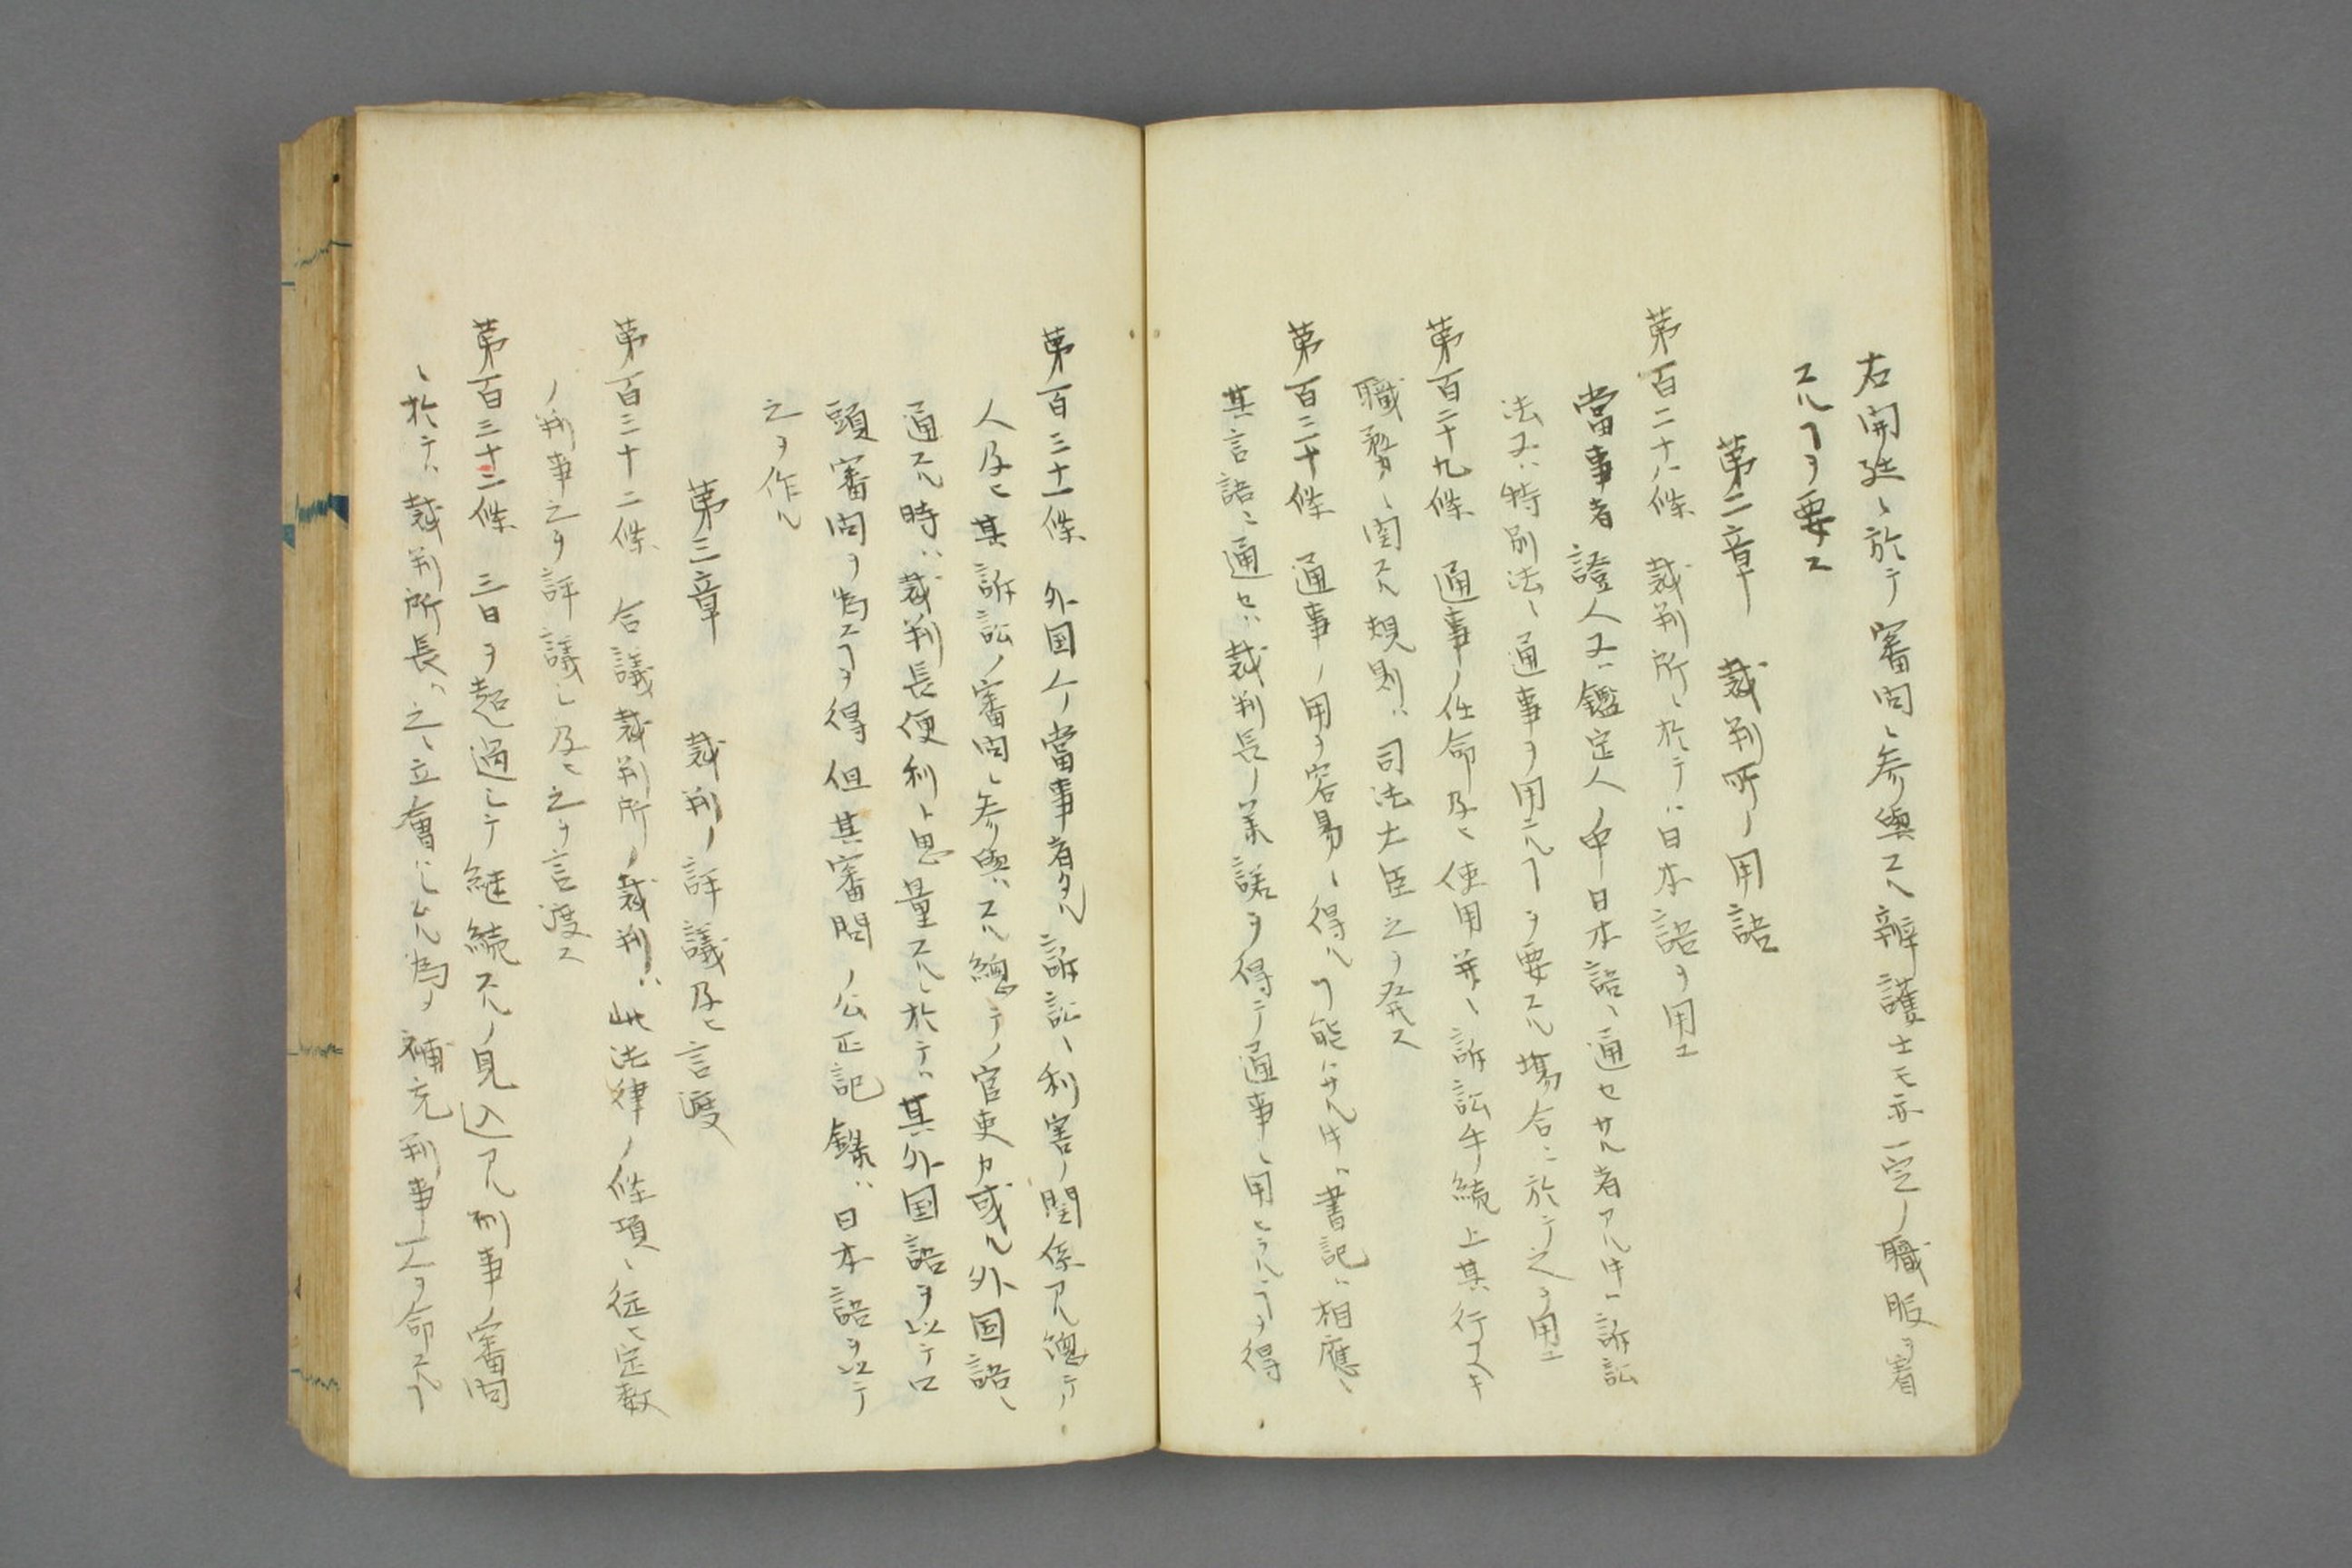 右開廷ニ於テ審問ニ参與スル辯護士モ亦一定ノ職服ヲ着
スルヿヲ要ス
第二章　裁判所ノ用語
第百二十八條　裁判所ニ於テハ日本語ヲ用エ
當事者證人又ハ鑑定人ノ中日本語ニ通セサル者アル片ハ訴訟
法又ハ特別法ニ通事ヲ用ユルヿヲ要スル塲合ニ於テ之ヲ用エ
第百二十九條　通事ノ任命及ヒ使用並ニ訴訟手續上其行フヘキ
職務ニ関スル規則ハ司法大臣之ヲ発ス
第百三十條　通事ノ用ヲ容易ニ得ルヿ能ハサル片ハ書記ハ相應ニ
其言語ニ通セハ裁判長ノ承諾ヲ得テ通事ニ用ヒラルヽヿヲ得
第百三十一條　外国人ノ當事者タル訴訟ニ利害ノ関係アル總テノ
人及ヒ其訴訟ノ審問ニ参與スル總テノ官吏カ或ル外国語ニ
通スル時ハ裁判長便利ト思量スルニ於テハ其外国語ヲ以テ口
頭審問ヲ為スヿヲ得但其審問ノ公正記録ハ日本語ヲ以テ
之ヲ作ル
第三章　裁判ノ評議及ヒ言渡
第百三十二條　合議裁判所ノ裁判ハ此法律ノ條項ニ従ヒ定数
ノ判事之ヲ評議シ及ヒ之ヲ言渡ス
第百三十三條　三日ヲ超過シテ継続スルノ見込アル刑事ノ審問
ニ於テハ裁判所長ハ之ニ立會ハシムル為メ補充判事一人ヲ命スルヿ